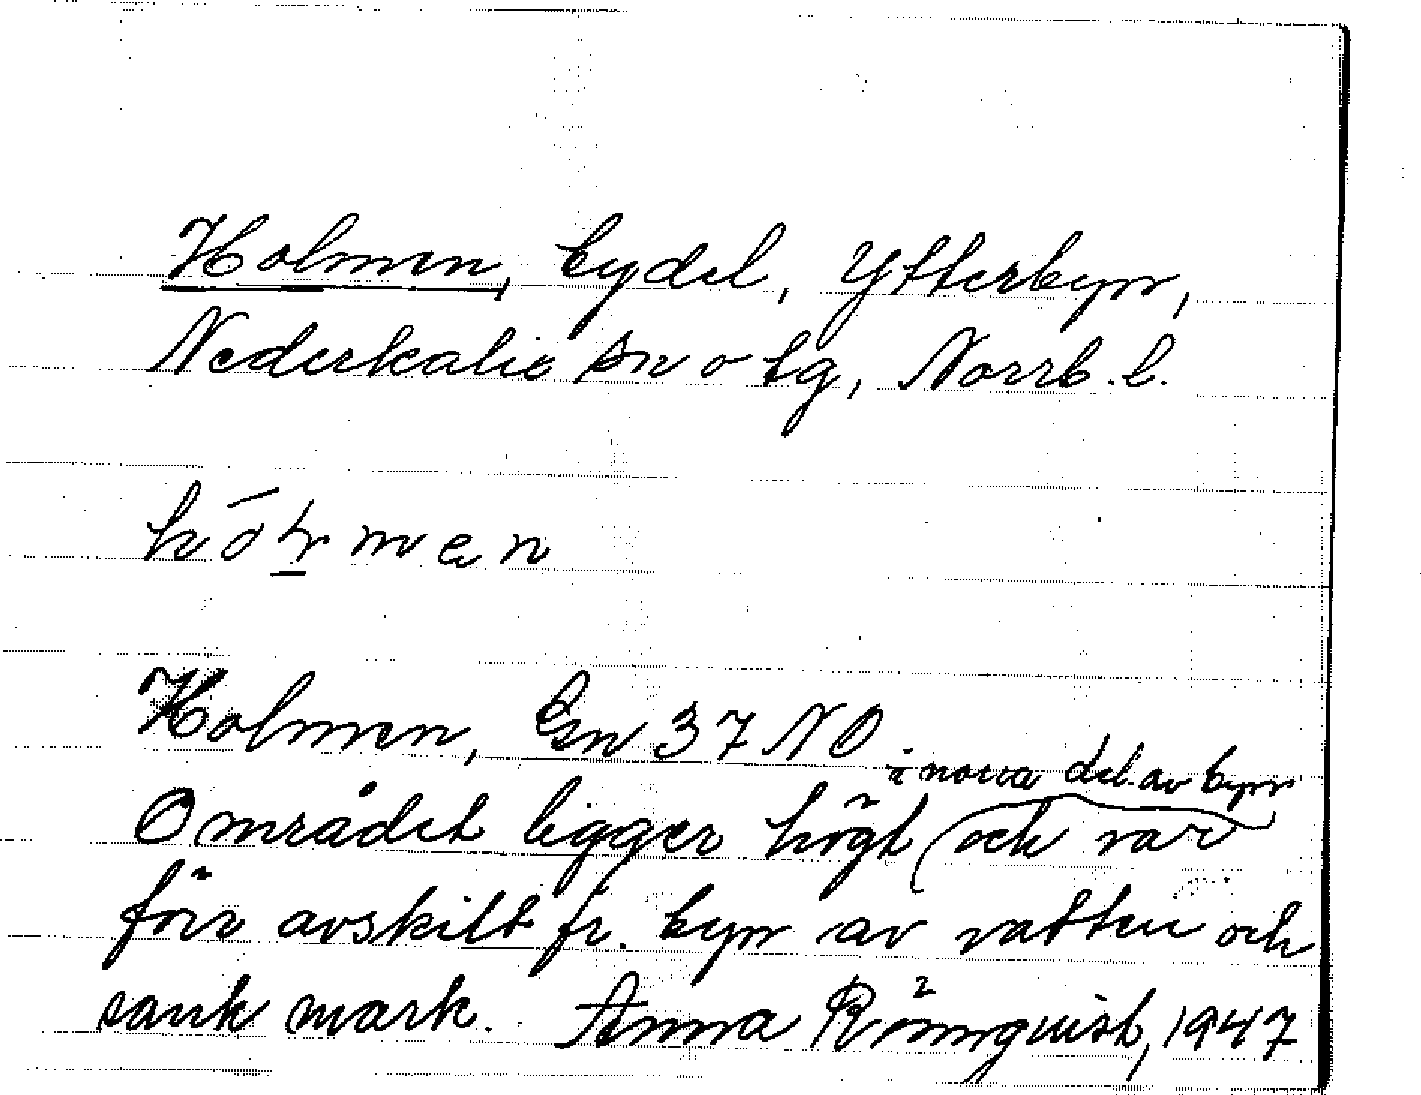 Holmen, bydel, Ytterbyn,
Nederkalix sn o tg, Norrb. l.
Holmen, Gsn 37 NO
i norra del. av byn
Området ligger högt och var
förr avskilt fr. byn av vatten och
sank mark. Anna Rönnquist, 1947